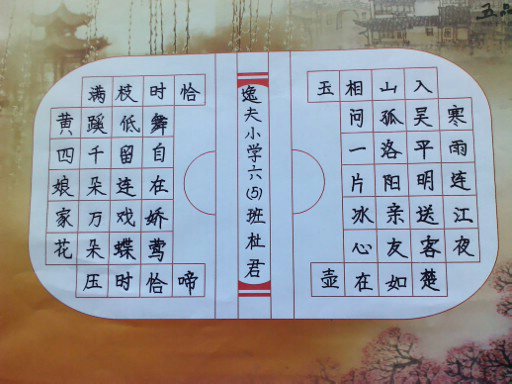 寒雨连江夜
入吴平明送客楚
山孤洛阳亲友如
相问一片冰心在
玉壶
逸夫小学六(5)班杜君
黄四娘家花
满蹊千朵万朵压
枝低留连戏蝶时
时舞自在娇莺恰
恰啼